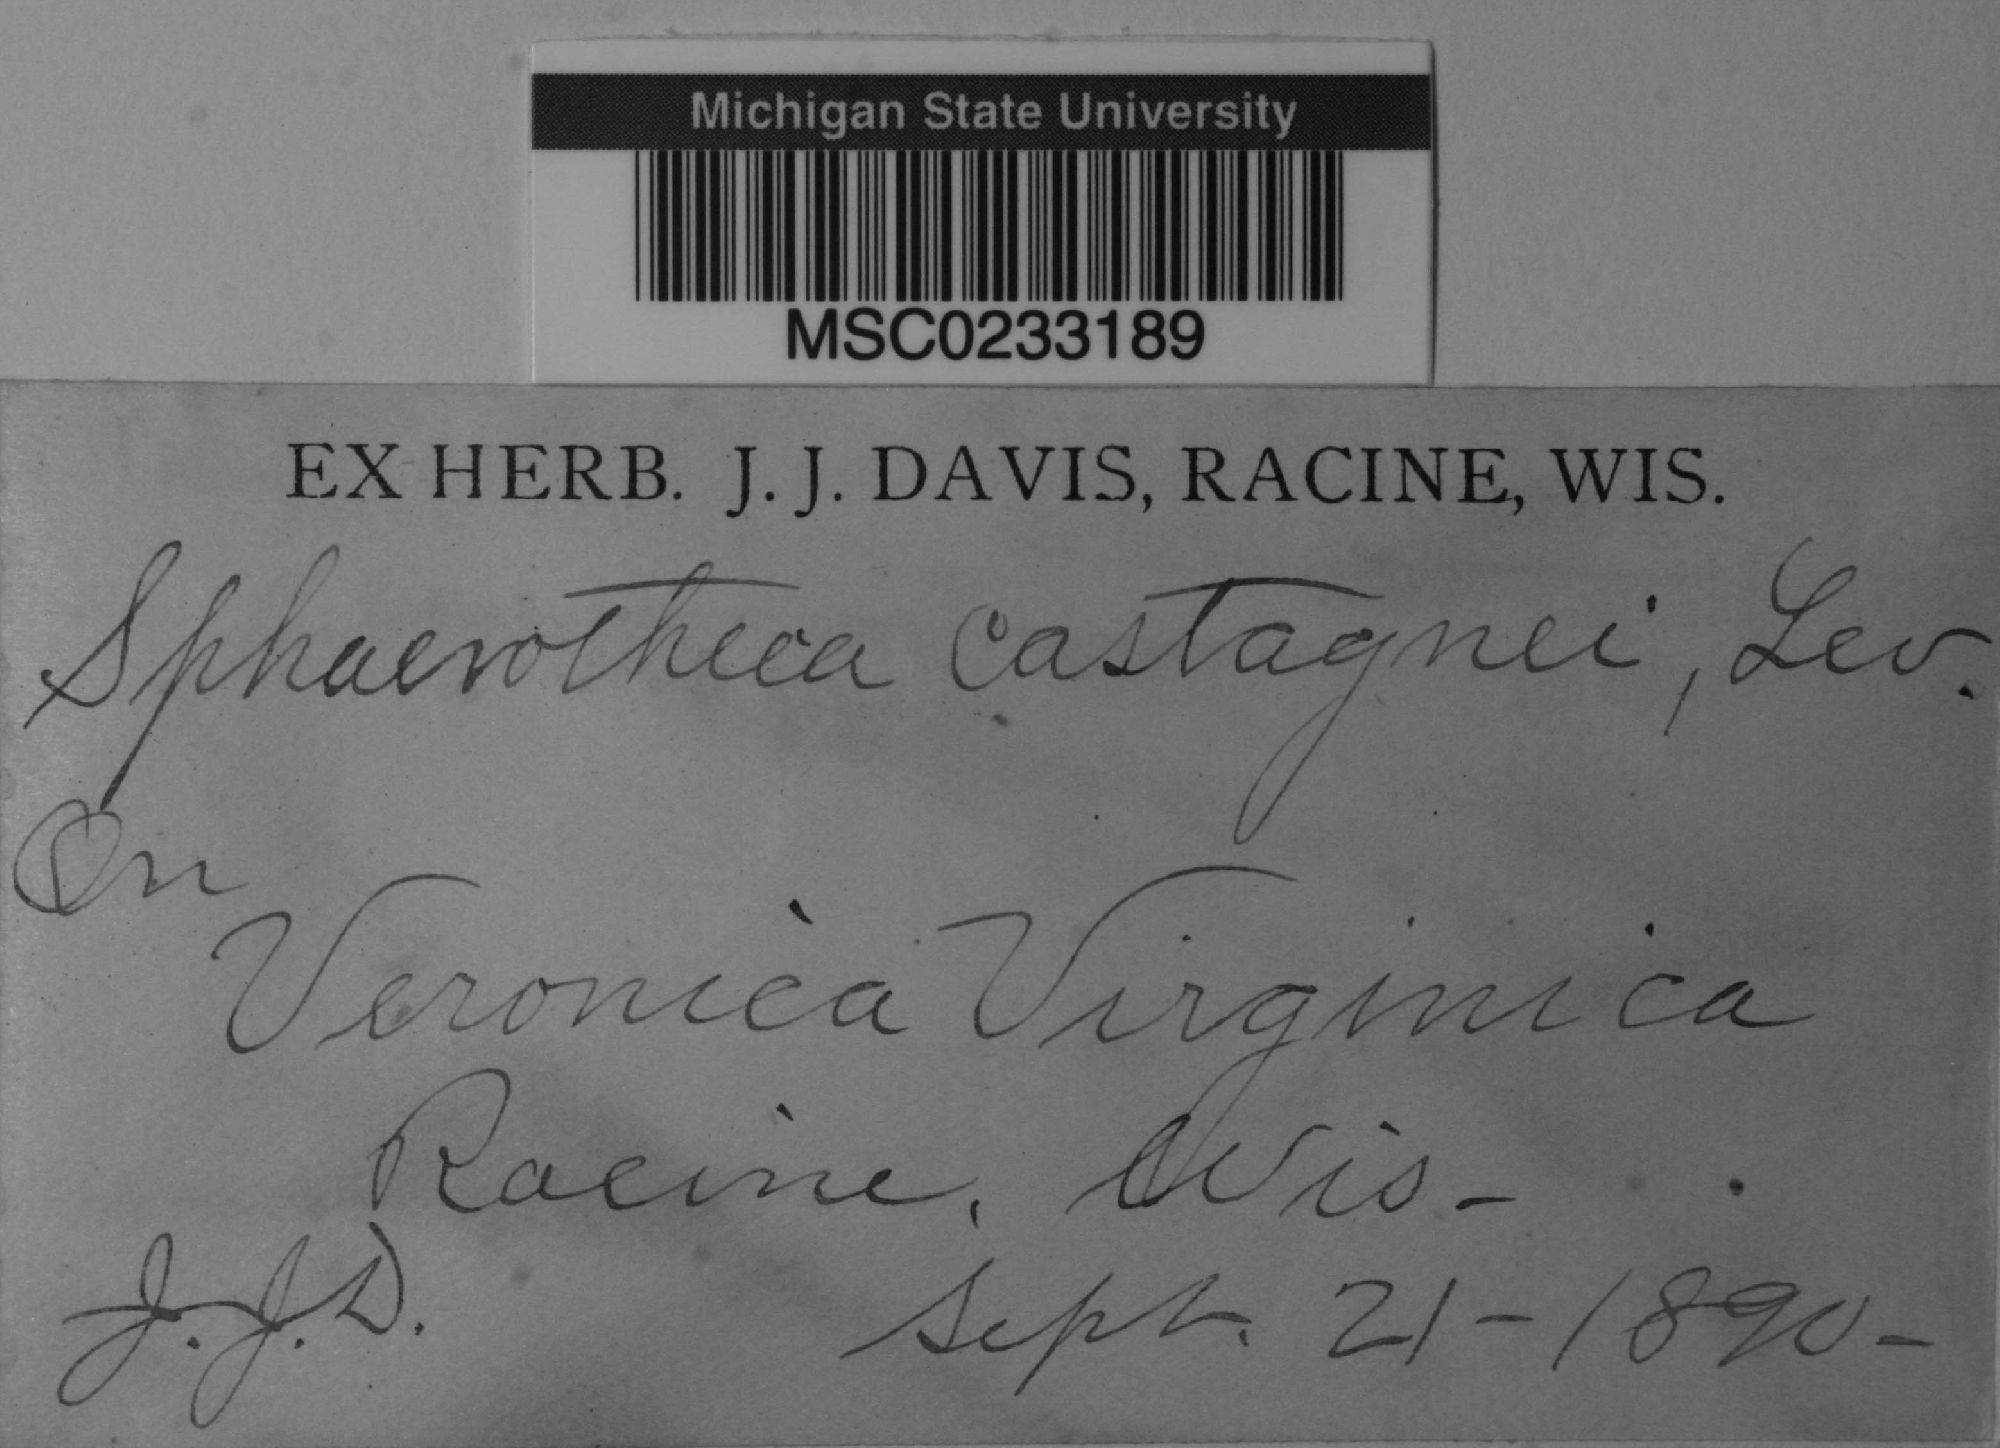 Michigan State University
MSC0233189
EX HERB. J. J. DAVIS, RACINE, WIS.
Sphaerotheca castagnei, Lev.
On
Veronica Virginica
Racine, Wis-
J. J. D. Sept. 21-1890-